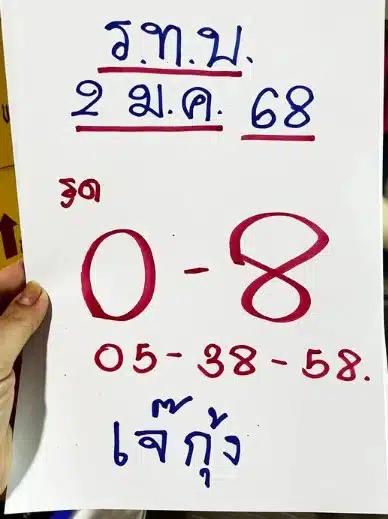 ร.ท.บ.
2 ม.ค. 68
รูด
0-8
05-38-58.
เจ๊กุ้ง